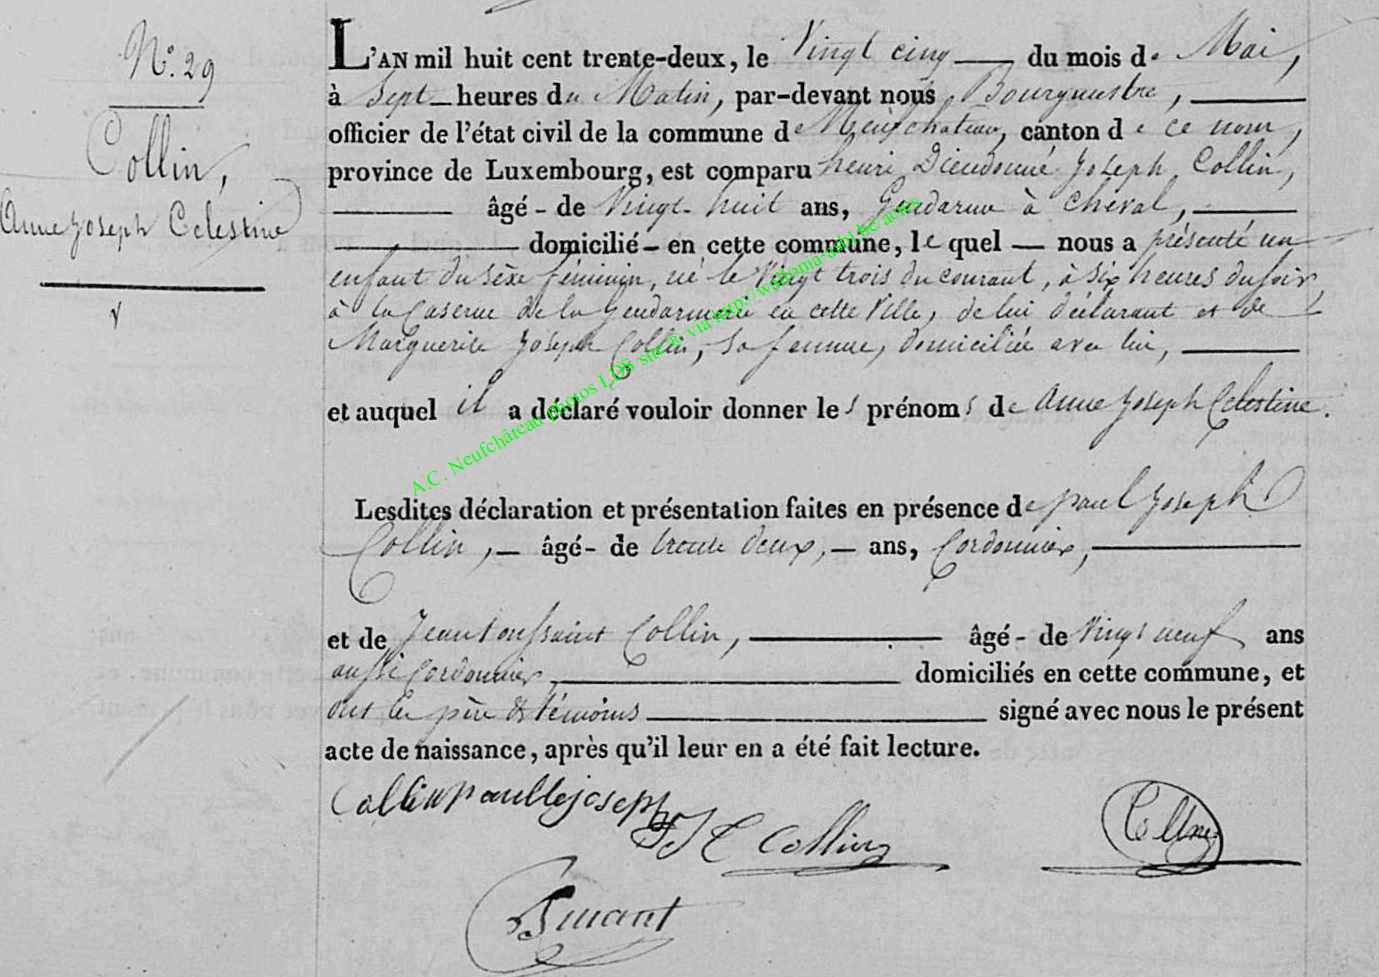 N° 29
Collin,
Anne Joseph Celestine
L'AN mil huit cent trente-deux, le Vingt cinq du mois de Mai,
à Sept heures du Matin, par-devant nous Bourgmestre,
officier de l'état civil de la commune de Neufchateau, canton de ce nom,
province de Luxembourg, est comparu henri Dieudonné Joseph Collin,
âgé - de Vingt-huit ans, Gendarme à cheval,
domicilié - en cette commune, le quel — nous a présenté un
enfant du sèxe féminin, né le Vingt trois du courant, à six heures du soir
à la Caserne de la Gendarmerie en cette Ville, de lui déclarant et de
Marguerite Joseph Collin, sa femme, domiciliée avec lui,
et auquel il a déclaré vouloir donner les prénoms de Anne Joseph Celestine.
Lesdites déclaration et présentation faites en présence de paul Joseph
Collin, — âgé - de trente deux, — ans, Cordonnier,
et de Jean toussaint Collin, âgé - de Vingt neuf ans
aussi Cordonnier, domiciliés en cette commune, et
ont les père & témoins signé avec nous le présent
acte de naissance, après qu'il leur en a été fait lecture.
Collin paulle joseph
J T Collin
Collin
A.C. Neufchâteau photos LDS site & via http://wallonia-asbl.be/actes